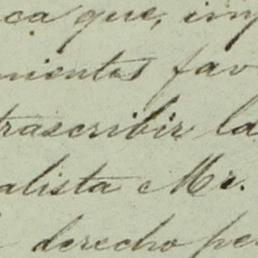 ca que, imp
mientos fav
trascribir la
alista Mr.
derecho pe